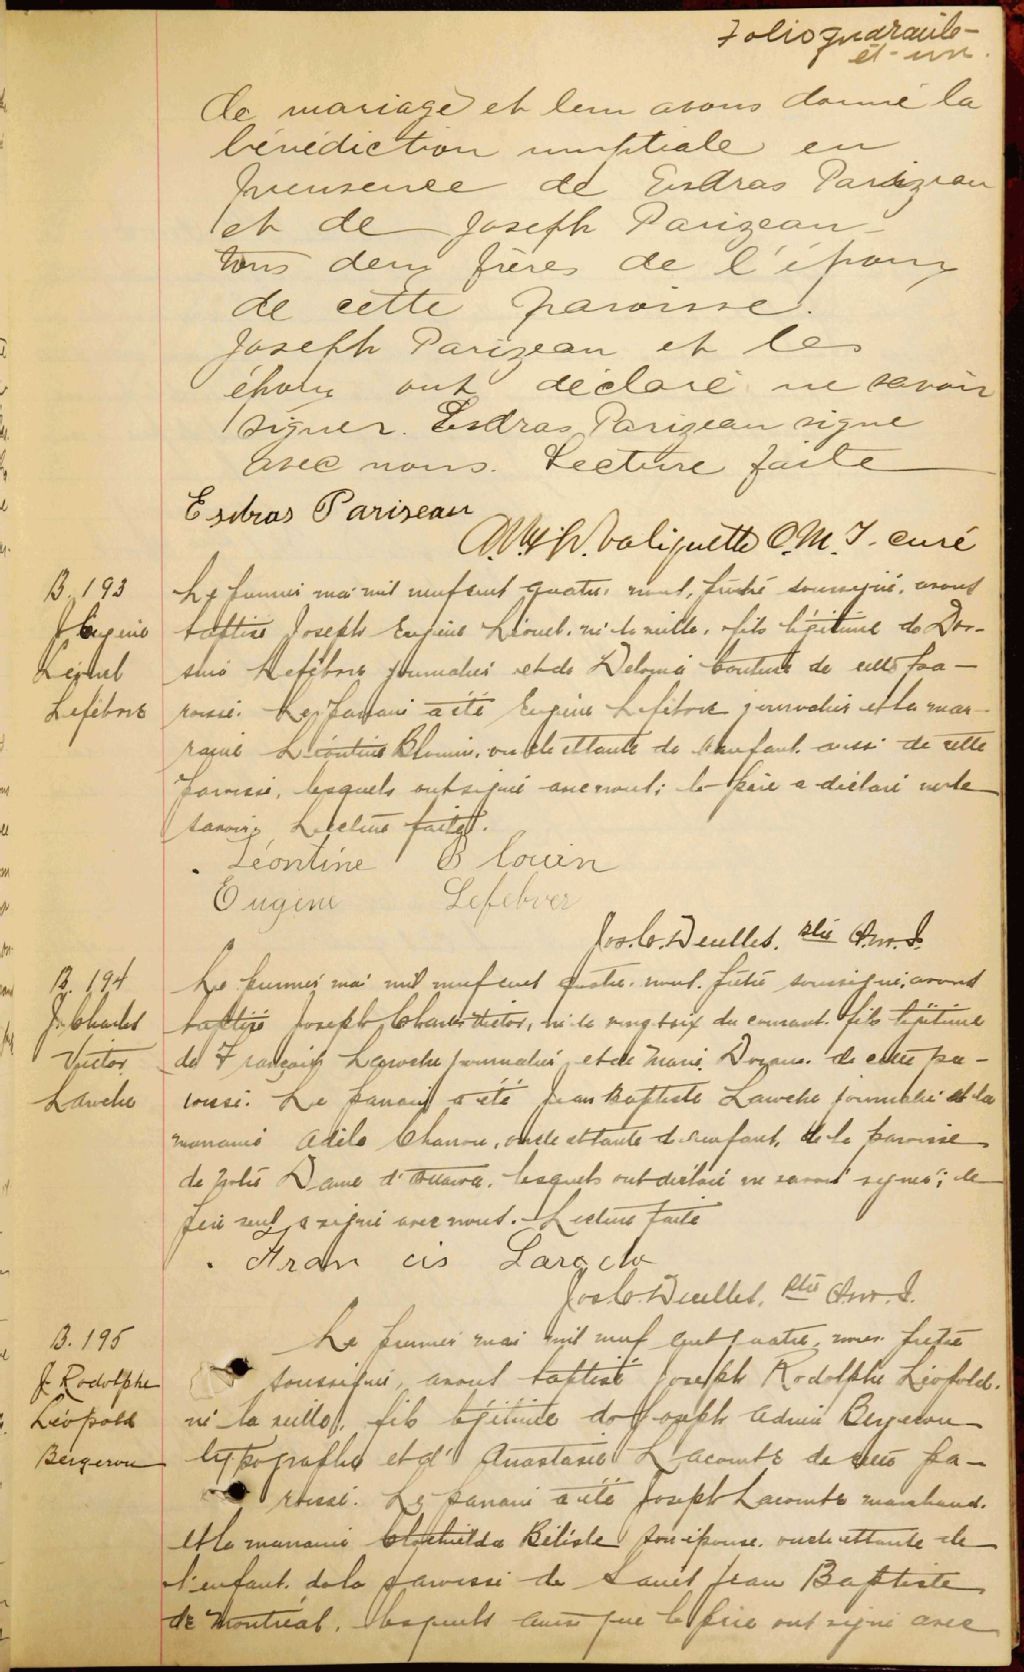 Folio quarante-
et-un.
de mariage et leur avons donné la
bénédiction nuptiale en
presence de Esdras Parizeau
et de Joseph Parizeau
tous deux frères de l'époux
de cette paroisse.
Joseph Parizeau et les
époux ont déclaré ne savoir
signer. Esdras Parizeau signe
avec nous. Lecture faite
Esdras Pariseau
Valiquette O.M.I. curé
B. 193
J. Eugène
Leonel
Lefebvre
Le premier mai mil neuf cent quatre, nous, prêtre soussigné, avons
baptisé Joseph Eugène Léonel, né la veille, fils légitime de
Lefebvre journalier et de Couture de cette pa-
roisse. Le parrain a été Eugène Lefebvre journalier et la mar-
raine Léontine Blouin, oncle et tante de l'enfant, aussi de cette
paroisse, lesquels ont signé avec nous; le père a déclaré ne le
savoir. Lecture faite.
Léontine Blouin
Eugène Lefebver
Jos. C. Ouellet, ptre O.M.I.
B. 194
J. Charles
Victor
Laroche
Le premier mai mil neuf cent quatre, nous, prêtre soussigné, avons
baptisé Joseph Charles Victor, né le vingt six du courant, fils légitime
de François Laroche journalier, et de Marie de cette pa-
roisse. Le parrain a été Jean Baptiste Laroche journalier et la
marraine Adèle oncle et tante de l'enfant, de la paroisse
de Notre Dame d'Ottawa, lesquels ont déclaré ne savoir signer; le
père seul a signé avec nous. Lecture faite
Francis Laroche
Jos. C. Ouellet, ptre O.M.I.
B. 195
J. Rodolphe
Léopold
Bergeron
Le premier mai mil neuf cent quatre, nous prêtre
soussigné, avons baptisé Joseph Rodolphe Léopold,
né la veille, fils légitime de Joseph Bergeron
typographe et d'Anastasie Lacombe de cette pa-
roisse. Le parrain a été Joseph Lacombe marchand,
et la marraine Clothilda Bélisle son épouse, oncle et tante de
l'enfant, de la paroisse de Saint Jean Baptiste
de Montréal, lesquels ainsi que le père ont signé avec